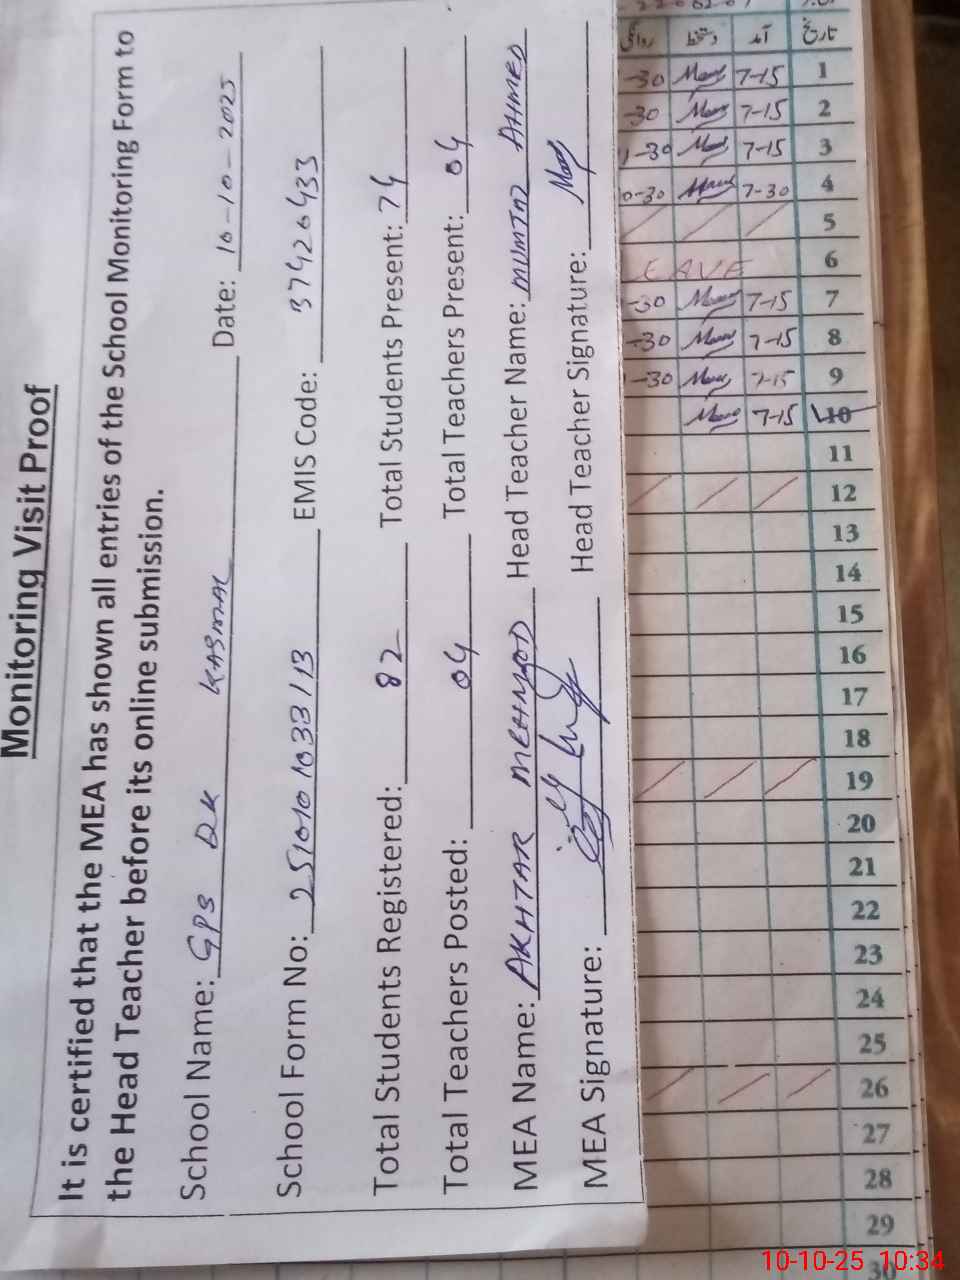 Monitoring Visit Proof
It is certified that the MEA has shown all entries of the School Monitoring Form to
the Head Teacher before its online submission.
School Name: GPS DK KASMAL Date: 10-10-2025
School Form No: 251010 1033113 EMIS Code: 37420433
Total Students Registered: 82 Total Students Present: 74
Total Teachers Posted: 04 Total Teachers Present: 04
MEA Name: AKHTAR MEHMOOD Head Teacher Name: MUMTAZ AHMED
MEA Signature: Head Teacher Signature:
تاریخ آمد دستخط روانگی
1 7-15 -30
2 7-15 -30
3 7-15 1-30
4 7-30 0-30
5
6 EAVE
7 7-15 -30
8 7-15 -30
9 7-15 -30
10 7-15
11
12
13
14
15
16
17
18
19
20
21
22
23
24
25
26
27
28
29
30
10-10-25 10:34